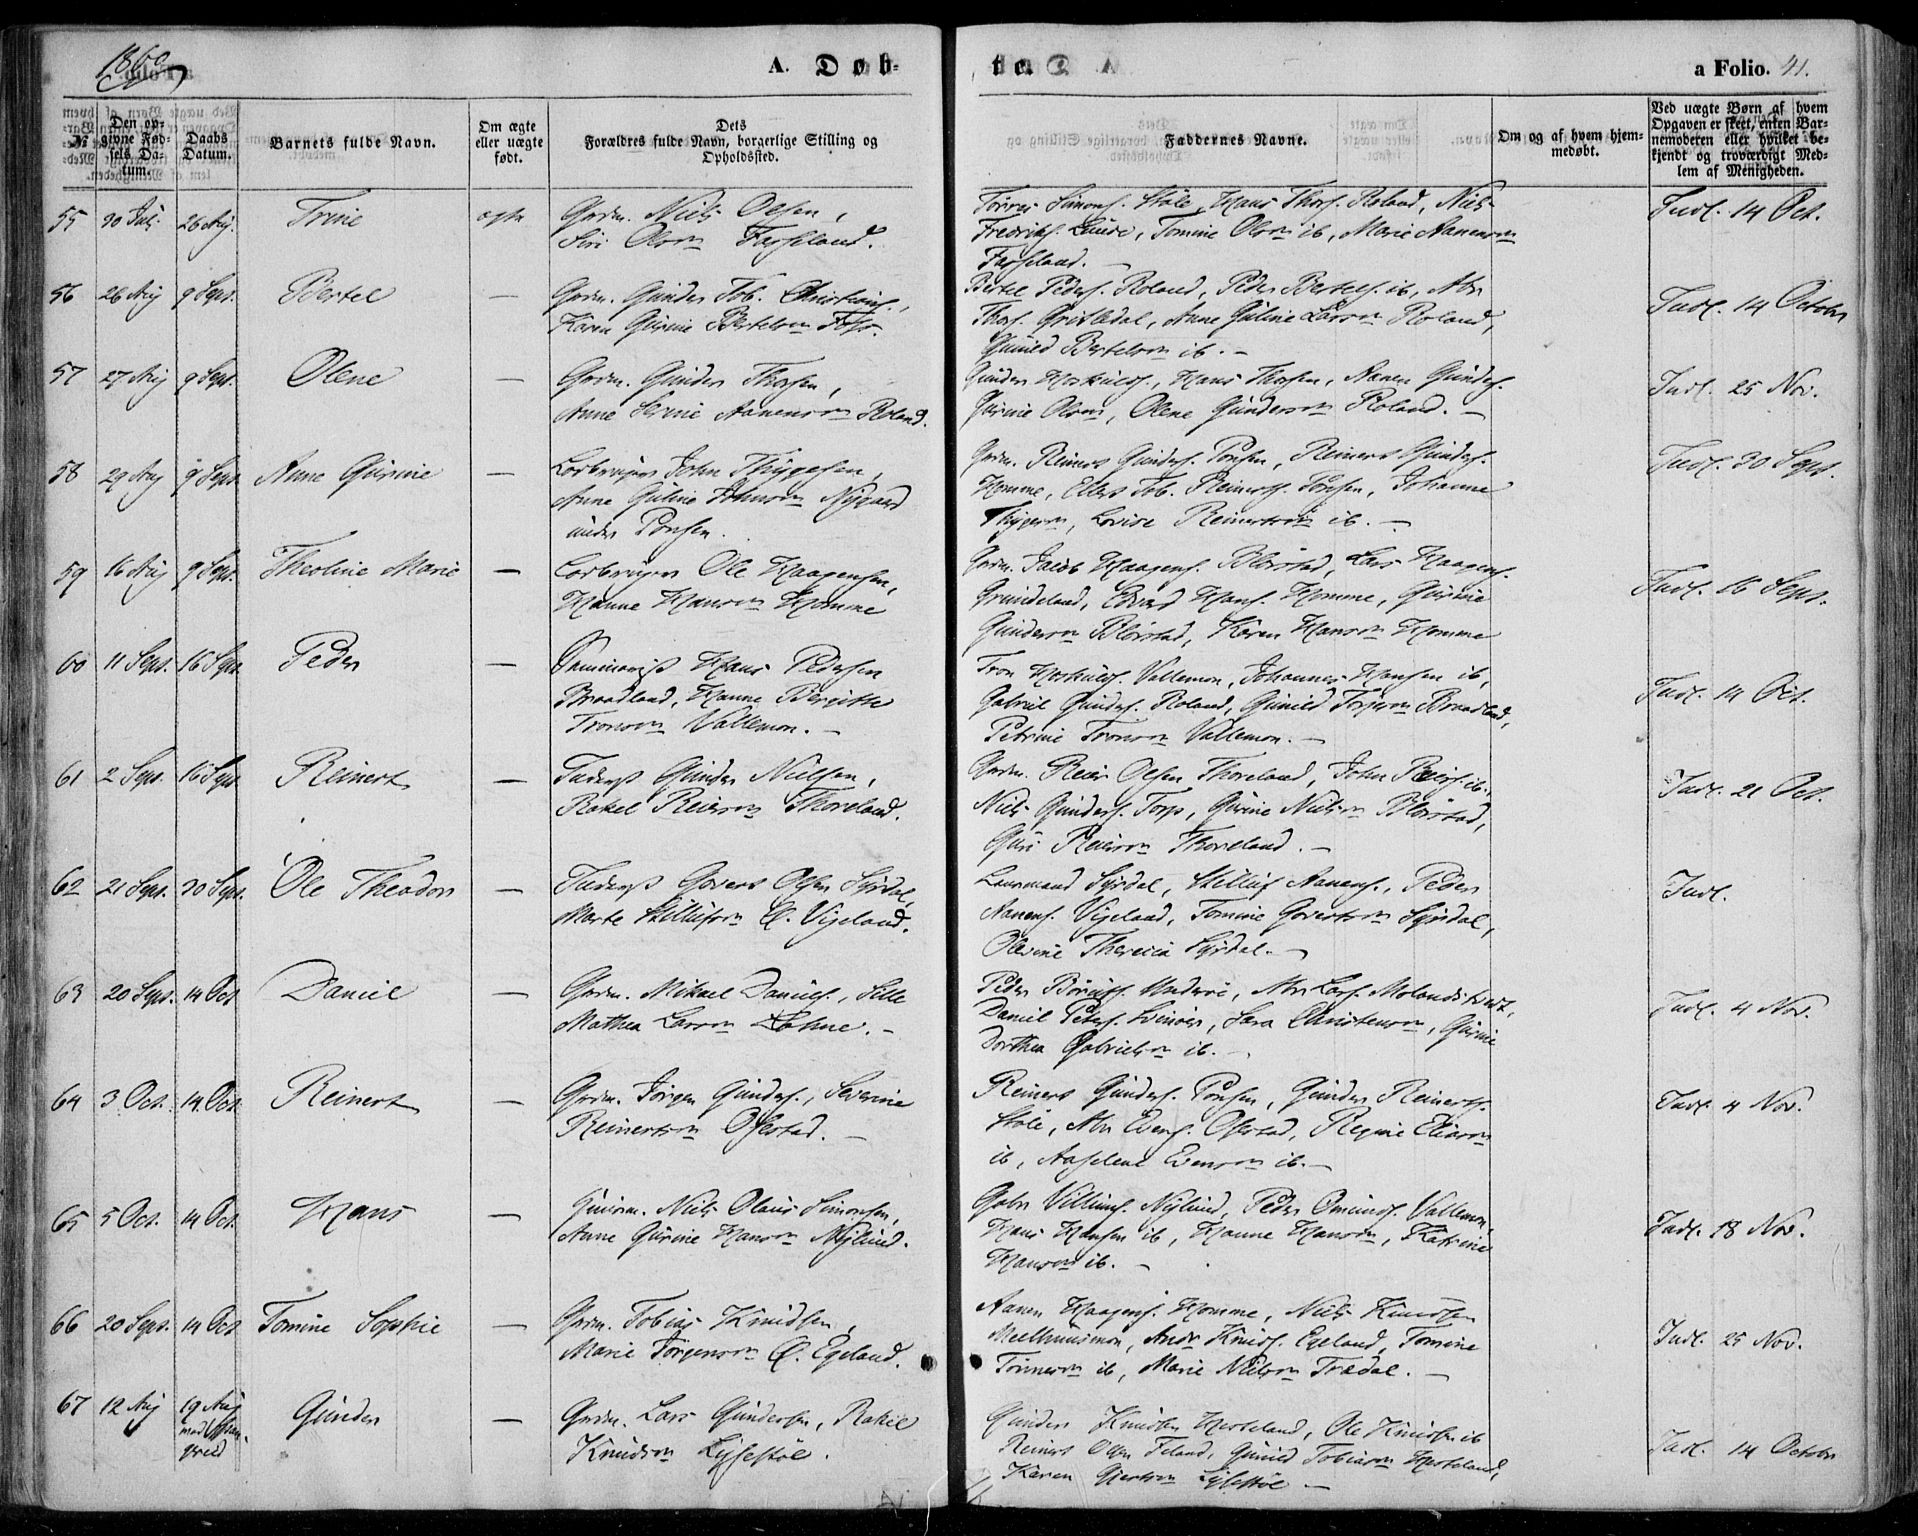 1860
A. Døb-
te.
a Folio. 41.
№
Den op-
givne Fød-
sels Da-
tum.
Daabs
Datum.
Barnets fulde Navn.
Om ægte
eller uægte
født.
Dets
Forældres fulde Navn, borgerlige Stilling og
Opholdssted.
Faddernes Navne.
Om og af hvem hjem-
medøbt.
Ved uægte Børn af hvem
Opgaven er skeet, enten Bar-
nemoderen eller hvilket be-
kjendt og troværdigt Med-
lem af Menigheden.
55 30 Juli 26 Aug. Trine ægte
Grdm. Niels Olsen,
Siri Olsen Farseland.
Simons. Støle, Hans Thors. Roland, Niels
Fredriks. Tomine Olsen ib, Marie Aanensen
Farseland. —
Indl. 14 Oct.
56 26 Aug 9 Sept. Bertel —
Grdm. Gunder Tob. Christians.,
Karen Gurine Bertelsen
Bertel Peders. Roland, Peder Bertels. ib, Abr
Thors. Anne Guline Larsen Roland,
Gunild Bertelsen ib. —
Indl. 14 Octobr
57 27 Aug 9 Sept. Olene —
Grdm. Gunder Thorsen,
Anne Serine Aanensen Roland.
Gunder Hans Thorsen, Aanen Gunders.
Gurine Olsen, Olene Gundersen Roland. —
Indl. 25 Nov.
58 29 Aug 9 Sept Anne Gurine —
John Thygesen,
Anne Guline Johnsen Nygaard
under
Grdm. Reinert Gunders. Reinert Gunders.
Homme, Ellert Tob. Reinerts. Johanne
Thygesen, Lovise Reinertsen ib. —
Indl. 30 Sept.
59 16 Aug 9 Sept. Theoline Marie —
Ole Haagensen,
Hanne Hansen Homme
Grdm. Jacob Haagens. Blørstad, Lars Haagens.
Grundeland, Edvard Hans. Homme, Gurine
Gundersen Blørstad, Karen Hansen Homme
Indl. 16 Sept.
60 11 Sept. 16 Sept. Peder —
Seminarist Hans Pedersen
Braadland, Hanne Bergitte
Tronsen Vallemon. —
Tron Vallemon, Johannes Hansen ib,
Gabriel Gunders. Roland, Gunild Braadland,
Petrine Tronsen Vallemon. —
Indl. 14 Oct.
61 2 Sept. 16 Sept Reinert —
Inderst Gunder Nielsen,
Rakel Reiersen Thoreland.
Grdm. Reier Olsen Thoreland, John Reiers. ib.
Niels Gunders. Torp, Gurine Nielsen Blørstad,
Guri Reiersen Thoreland. —
Indl. 21 Oct.
62 21 Sept. 30 Sept. Ole Theodor —
Inderst Govert Olsen Syrdal,
Marte Ø. Vigeland.
Syrdal, Aanens., Peder
Aanens. Vigeland, Tomine Govertsen Syrdal,
Olevine Theresia Syrdal. —
Indl.
63 20 Sept. 14 Oct Daniel —
Grdm. Mikael Daniels.,
Mathea Larsen Løhne. —
Peder Underøe, Abr Lars.
Daniel Peters. Svinøer, Sara Christensen, Gurine
Dorthea Gabrielsen ib. —
Indl. 4 Nov.
64 3 Oct. 14 Oct Reinert —
Grdm. Jørgen Gunders., Severine
Reinertsen Ofstad. —
Reinert Gunders. Gunder Reinerts.
Støle, Abr Evens. Ofstad, Regine Eliasen
ib, Aaselene Evensen ib. —
Indl. 4 Nov.
65 5 Oct. 14 Oct Hans —
Niels Olaus Simonsen,
Anne Gurine Hansen Nylund.
Gabr Villums. Nylund, Peder Omunds. Vallemon,
Hans Hansen ib, Hanne Hansen, Katrine
Hansen ib. —
Indl. 18 Nov.
66 20 Sept. 14 Oct Tomine Sophie —
Grdm. Tobias Knudsen,
Marie Jørgensen Ø. Egeland.
Aanen Haagens. Homme, Niels Knudsen
Andr Knuds. Egeland, Tomine
Tønnesen ib, Marie Nielsen Trædal. —
Indl. 25 Nov.
67 12 Aug 19 Aug Gunder —
Grdm. Lars Gundersen, Rakel
Knudsen Lysestøl.
Gunder Knudsen Harkeland, Ole Knudsen ib
Reinert Olsen Gunild Tobiasen Harkeland,
Karen Gjertsen Lysestøl —
Indl. 14 Octobr